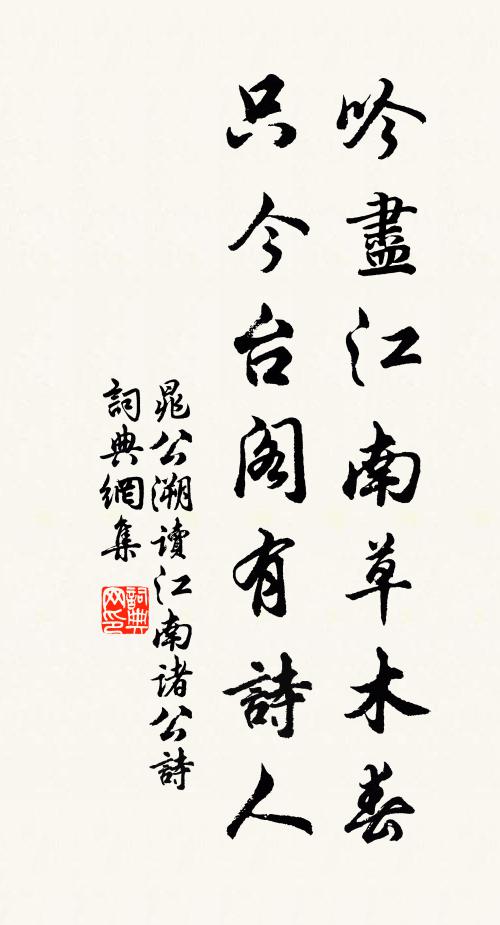 吟盡江南草木春
只今台阁有詩人
晁公溯讀江南诸公詩
詞典網集
詞典网印